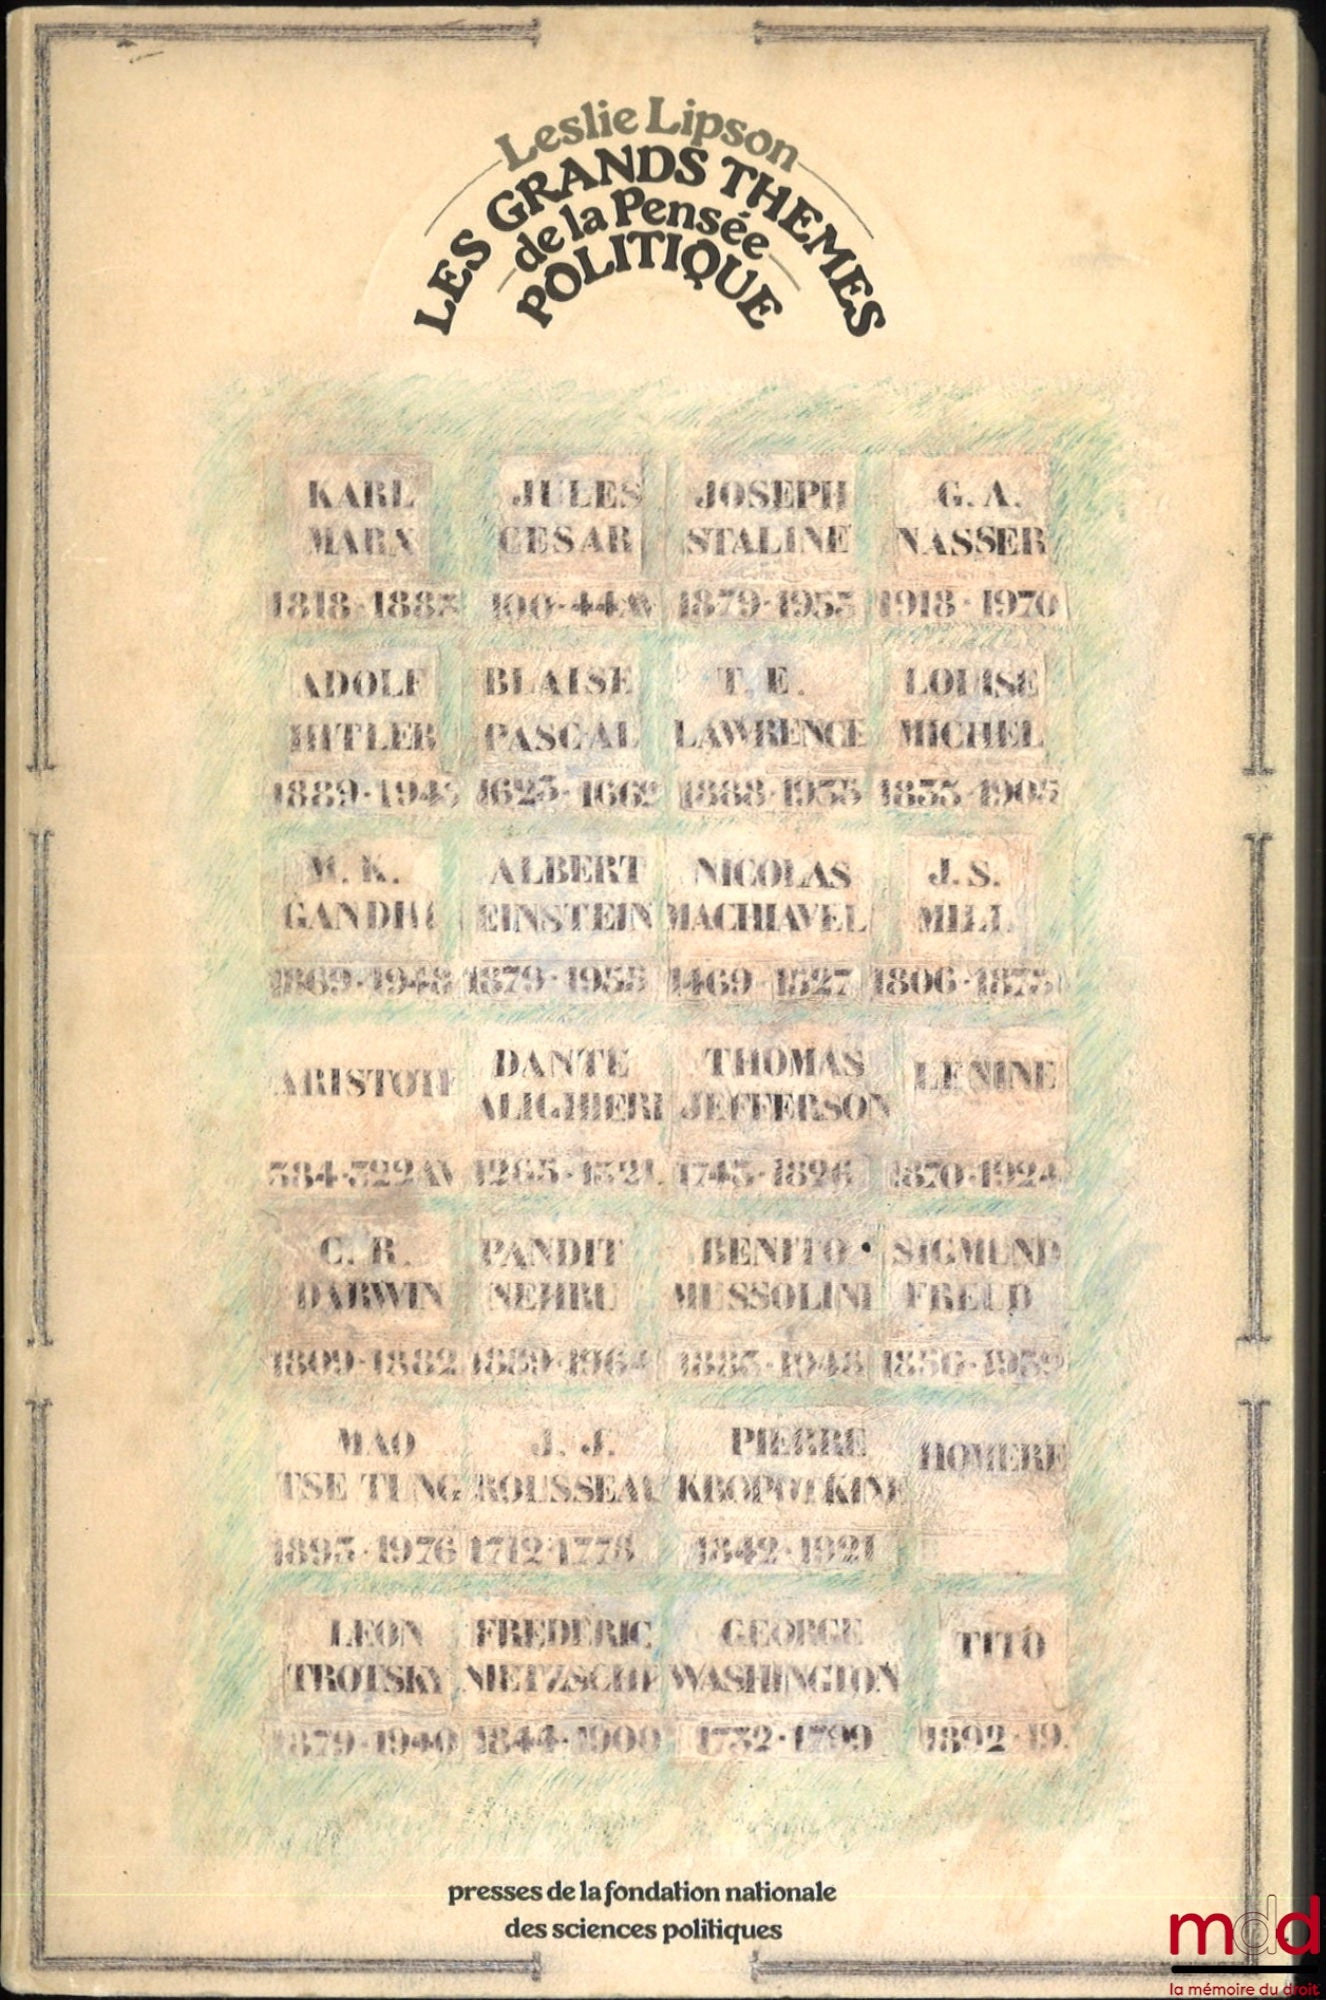 Leslie Lipson
LES GRANDS THEMES
de la Pensée
POLITIQUE
KARL MARX
1818-1883
JULES CESAR
100-44 AV
JOSEPH STALINE
1879-1953
G. A. NASSER
1918-1970
ADOLF HITLER
1889-1945
BLAISE PASCAL
1623-1662
T. E. LAWRENCE
1888-1935
LOUISE MICHEL
1833-1905
M. K. GANDHI
1869-1948
ALBERT EINSTEIN
1879-1955
NICOLAS MACHIAVEL
1469-1527
J. S. MILL
1806-1873
ARISTOTE
384-322 AV
DANTE ALIGHIERI
1265-1321
THOMAS JEFFERSON
1743-1826
LENINE
1870-1924
C. R. DARWIN
1809-1882
PANDIT NEHRU
1889-1964
BENITO MUSSOLINI
1883-1945
SIGMUND FREUD
1856-1939
MAO TSE TUNG
1893-1976
J. J. ROUSSEAU
1712-1778
PIERRE KROPOTKINE
1842-1921
HOMERE
LEON TROTSKY
1879-1940
FREDERIC NIETZSCHE
1844-1900
GEORGE WASHINGTON
1732-1799
TITO
1892-19.
presses de la fondation nationale
des sciences politiques
mdd
la mémoire du droit